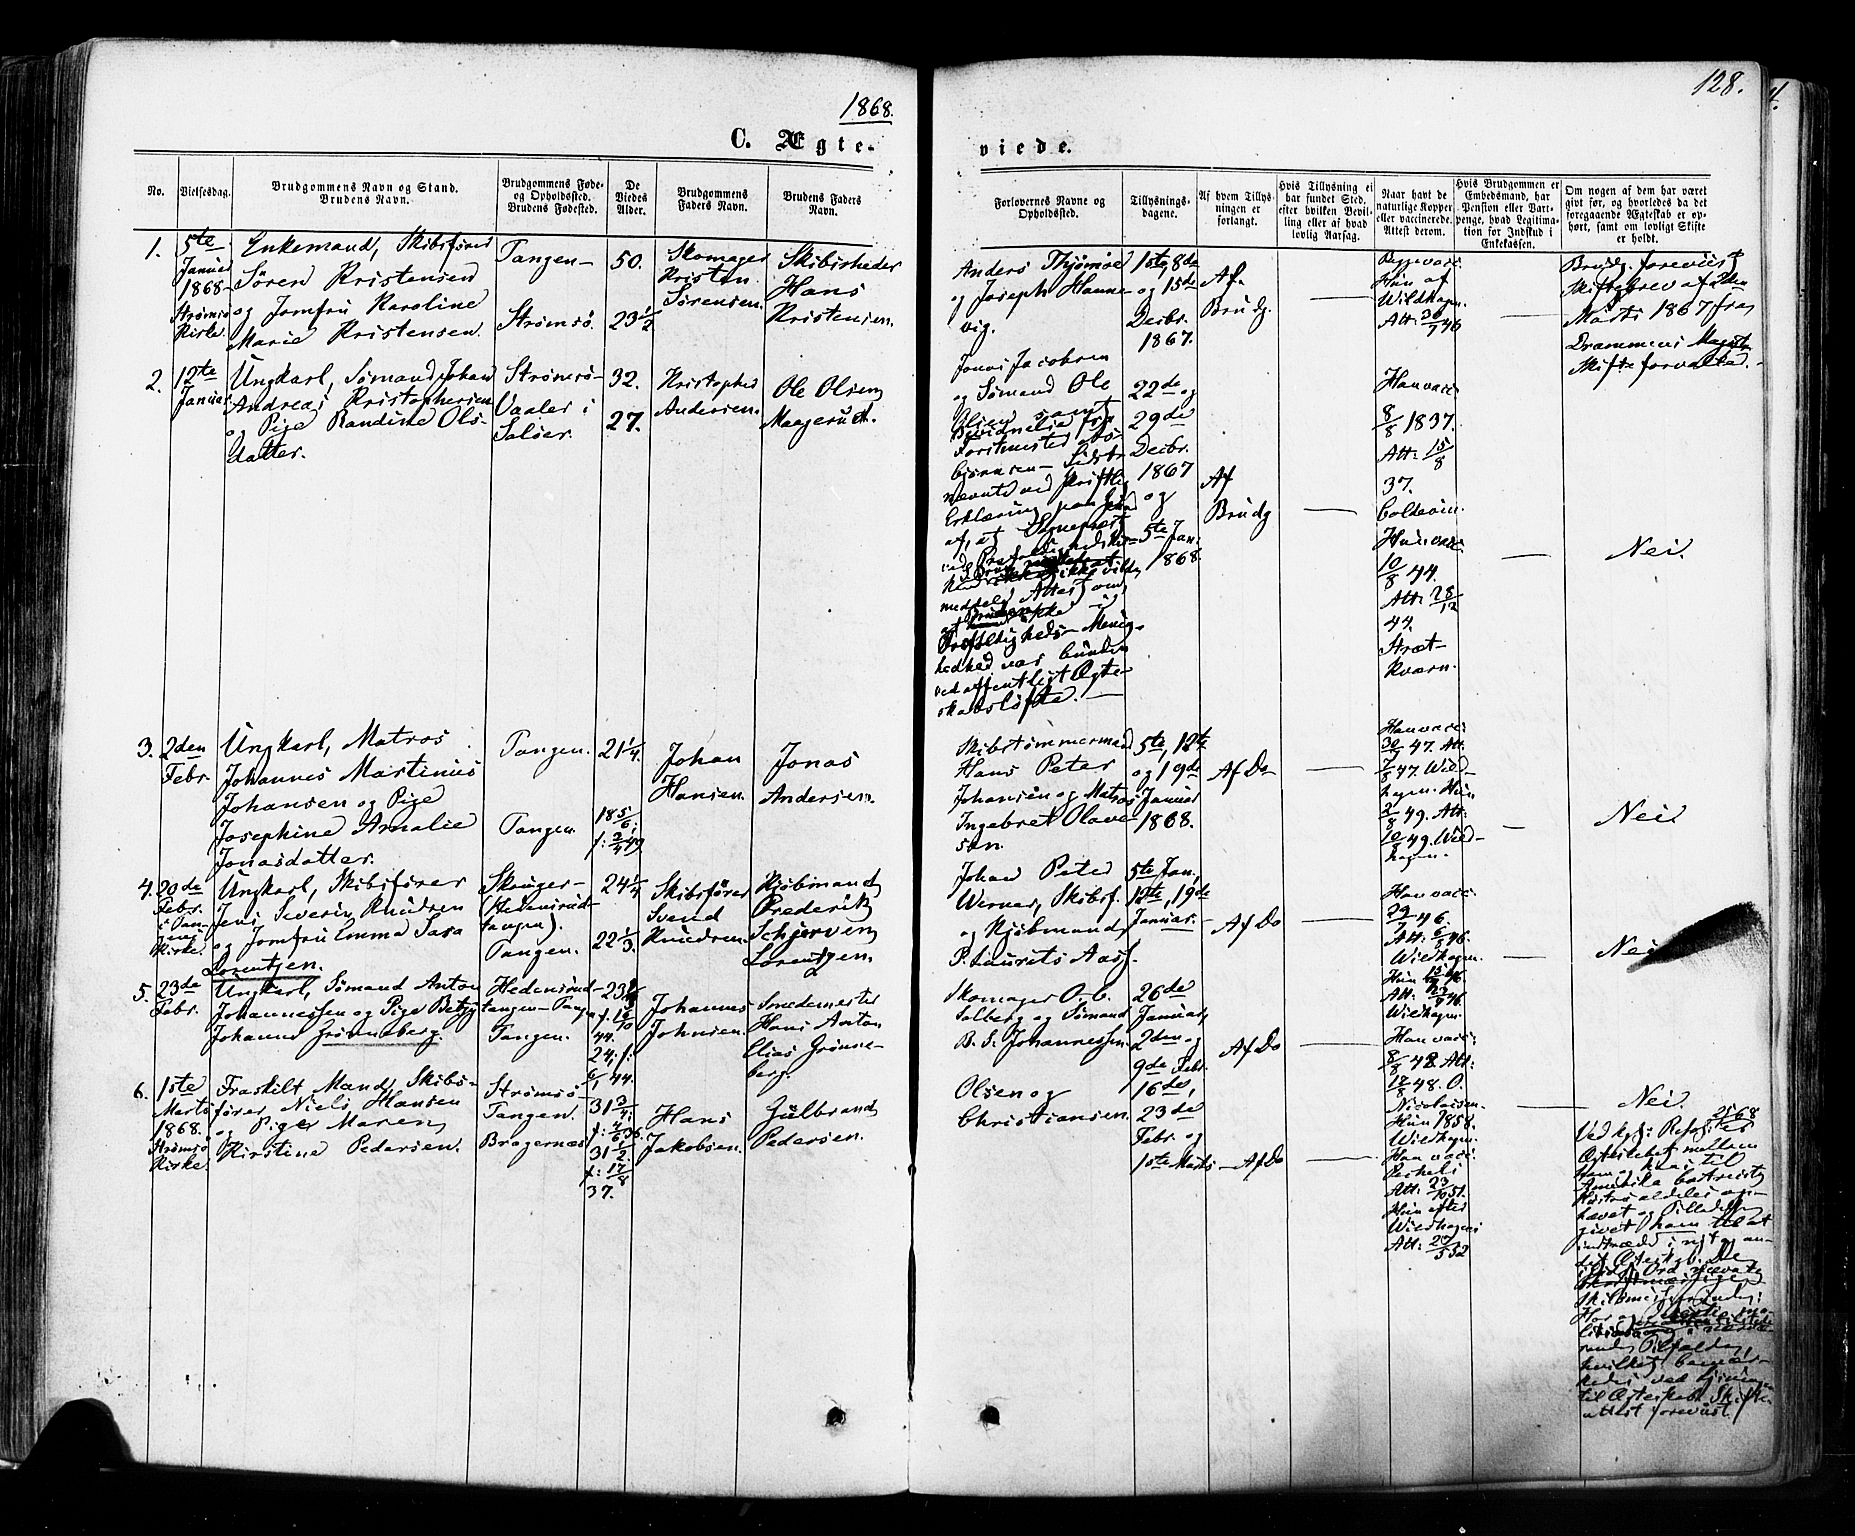 1868.
128.
C. Ægte-
viede.
No.
Vielsesdag.
Brudgommens Navn og Stand.
Brudens Navn.
Brudgommens Føde-
og Opholdssted.
Brudens Fødested.
De
Viedes
Alder.
Brudgommens
Faders Navn.
Brudens Faders
Navn.
Forlovernes Navne og
Opholdssted.
Tillysnings-
dagene.
Af hvem Tillys-
ningen er
forlangt.
Hvis Tillysning ei
har fundet Sted,
efter hvilken Bevil-
ling eller af hvad
lovlig Aarsag.
Naar havt de
naturlige Kopper
eller vaccinerede.
Attest derom.
Hvis Brudgommen er
Embedsmand, har
Pension eller Vart-
penge, hvad Legitima-
tion for Indskud i
Enkekassen.
Om nogen af dem har været
gift før, og hvorledes da det
foregaaende Ægteskab er op-
hørt, samt om lovligt Skifte
er holdt.
1.
5te
Januar
1868-
Strømsø
Kirke.
Enkemand, Skibsfører
Søren Kristensen
og Jomfru Karoline
Marie Kristensen.
Tangen-
Strømsø.
50.
23 1/2
Skomager
Kristen
Sørensen.
Skibsrheder
Hans
Kristensen.
Anders Thjømøe
og Joseph Hanne-
vig.
1ste, 8de
og 15de
Decbr.
1867.
Af
Brudg.
Begge vacc.
Hun af
Wildhagen.
Att: 30/7 46
Brudg. foreviist
Skiftebrev af 2den
Marts 1867 fra
Drammens Magist.
Skifteforvalter.-
2.
12te
Januar
Ungkarl, Sømand Johan
Andreas Kristophersen
og Pige Randine Ols-
datter.
Strømsø-
Vaaler i
Soløer.
32.
27.
Kristopher
Andersen.
Ole Olsen
Maagerud.
Jonas Jacobsen
og Sømand Ole
Olsen samt
nævnte ved skriftlig
Erklæring
af, at Sognepræst
meddele Attest om
Menig-
hed var bunden
ved offentligt Ægte-
skabsløfte.-
22de og
29de
Decbr.
1867
og
5te Jan.
1868.
Af
Brudg
Han vacc.
8/8 1837.
Att: 15/8
37.
Coldevin.
Hun vacc.
10/8 44.
Att: 28/12
44.
Stræt-
kværn.
Nei.
3.
2den
Febr.
Ungkarl, Matros
Johannes Martinus
Johansen og Pige
Josephine Amalie
Jonasdatter.
Tangen.
Tangen.
21 1/4.
18 5/6;
f: 2/4 49
Johan
Hansen.
Jonas
Andersen.
Skibstømmermand
Hans Peter
Johansen og Matros
Ingebret Olave-
sen.
5te, 12te
og 19de
Januar
1868.
Af Do
Han vacc:
30/7 47. Att.
7/8 47. Wild-
hagen. Hun
2/8 49. Att:
10/8 49. Wild-
hagen.
Nei.
4.
20de
Febr.
i Tan-
gens
Kirke.
Ungkarl, Skibsfører
Jens Severin Knudsen
og Jomfru Emma Sara
Lorentzen.
Skoger-
(Hedensrud-
tangen).
Tangen.
24 1/4
22 1/3.
Skibsfører
Svend
Knudsen.
Kjøbmand
Frederik
Schjerven
Lorentzen.
Johan Peter
Werner, Skibsf.
og Kjøbmand
P. Laurits Aass.
5te Jan.,
12te, 19de
Januar.-
Af Do
Han vacc:
29/7 46.
Att: 6/8 46.
Wildhagen.
Hun 15/8 46
Att:
Wildhagen.
Nei
5.
23de
Febr.
Ungkarl, Sømand Anton
Johannessen og Pige Betzy
Johanne Grønneberg.
Hedensrud-
tangen-Tangen
Tangen.
f: 18/10
44.
24; f:
44.
Johannes
Johnsen.
Smedemester
Hans Anton
Elias Grønne-
berg.
Skomager O. C.
Solberg og Sømand
B. S. Johannessen.
26de
Januar,
2den og
9de Febr.
Af Do
Han vacc:
8/8 48. Att:
18/8 48. O.
Nicolaisen.
Hun 1858.
Wildhagen.
Nei.
6.
1ste
Marts
1868.
Strømsø
Kirke.
Fraskilt Mand, Skibs-
fører, Niels Hansen
og Pige Maren
Kirstine Pedersen.
Strømsø-
Tangen.
Bragernæs
31 3/4;
31 1/2.
f: 17/8
37.
Hans
Jakobsen.
Gulbrand
Pedersen.
Olsen og
Christiansen.
16de,
23de
Febr. og
1ste Marts
- Af Do
Han vacc:
Att: 23/10 51.
Hun efter
Wildhagens
Att: 20/5 52
Ved kgl: Resol:
Ægteskabet mellem
ham og hans til
Amerika bortreiste
Hustru aldeles op-
hævet og Tilladelse
givet ham til at
indtræde i nyt og an-
det Ægteskab. De
til Ægteskab. Skifte-
attest foreviist.